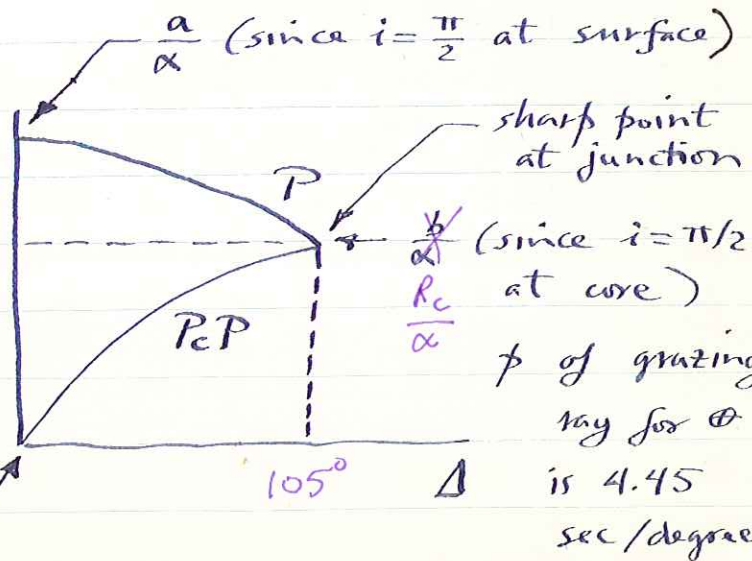 a/α (since i = π/2 at surface)
sharp point
at junction
P
b/α (since i = π/2
R_c/α at core)
P_cP
p of grazing
ray for ⊕
105° Δ is 4.45
sec/degree